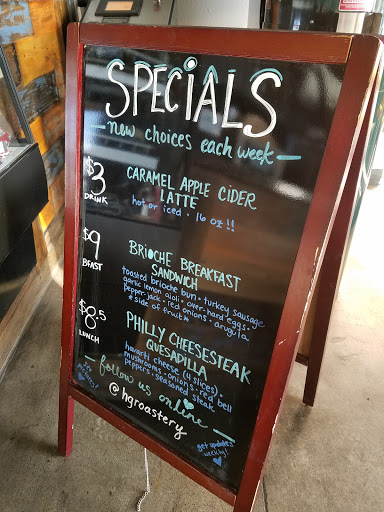 SPECIALS
new choices each week
$3
DRINK
CARAMEL APPLE CIDER
LATTE
hot or iced · 16 oz!!
$9
BEAST
BRIOCHE BREAKFAST
SANDWICH
toasted brioche bun · turkey sausage
garlic lemon aioli · over-hard eggs ·
pepper jack · red onions · arugula
*side of fruit*
$8.5
LUNCH
PHILLY CHEESESTEAK
QUESADILLA
havarti cheese (4 slices) ·
mushrooms · onions · red bell
peppers · seasoned steak
follow us online
@hgroastery
get updates
weekly!